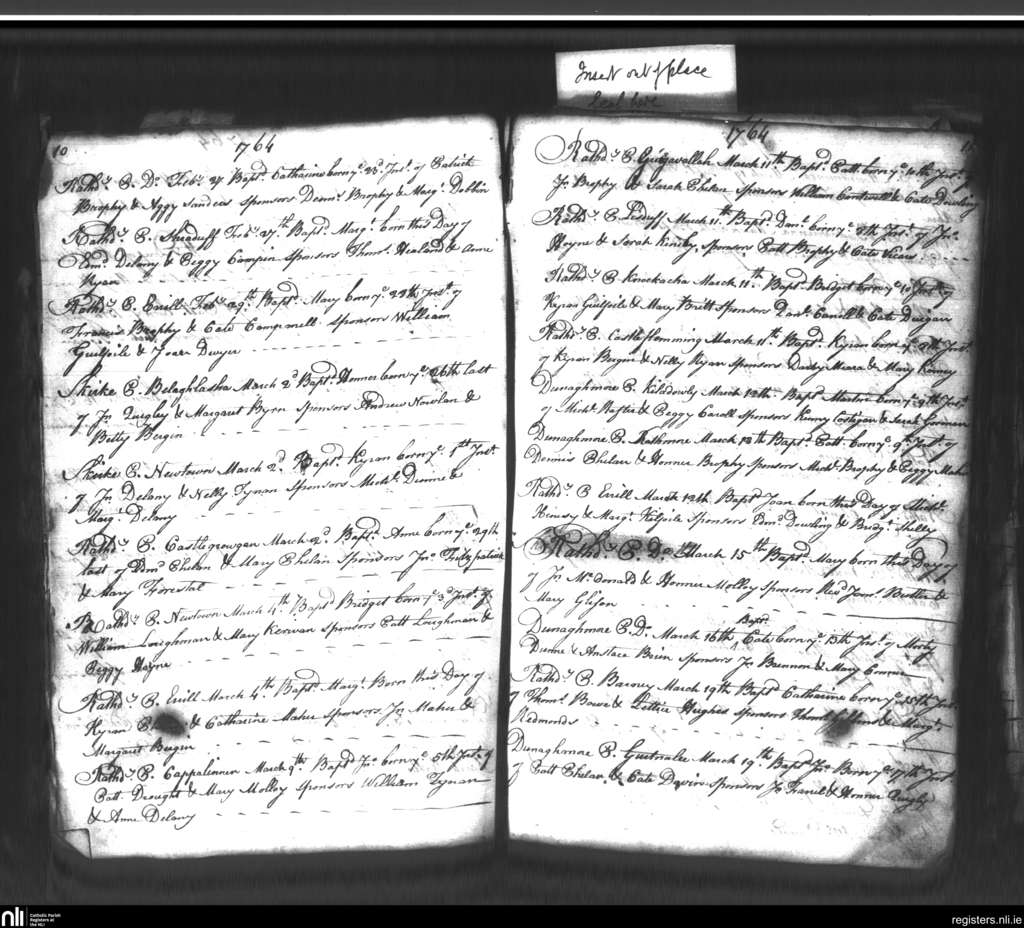 Insert out of place
Leaf here
10
1764
Rathd.y P. Do Feb.y 27 Bapt.d Catharine born y.e 23.d Inst. of Patrick
Brophy & Aggy Sanders Sponsors Denn.s Brophy & Mary Dobbin
Rathd.y P. Feb.y 27.th Bapt.d Marg.t born this Day of
Edm.d Delany & Peggy Campin Sponsors Thom.s Healand & Anne
Ryan
Rathd.y P. Erill Feb.y 29.th Bapt.d Mary born y.e 28th Inst. of
Francis Brophy & Cate Campanell Sponsors William
Guilfoile & Joan Dwyer
Skirke P. Belaghlasha March 2.d Bapt.d Honner born y.e 26th last
of Jn Quigley & Margaret Byrn Sponsors Andrew Nowlan &
Betty Bergin
Skirke P. Newtown March 2.d Bapt.d Kyran born y.e 1st Inst.
of Jn Delany & Nelly Tynan Sponsors Mich.l Dunne &
Marg.t Delany
Rathd.y P. Castlegrowgan March 2.d Bapt.d Anne born y.e 29th
last of Edm.d Phelan & Mary Phelan Sponsors Jn.o Fitzpatrick
& Mary Forestal
Rathd.y P. Newtown March 4.th Bapt.d Bridget born y.e 3.d Inst. of
William Loughman & Mary Kerwan Sponsors Patt Loughman &
Peggy Hayne
Rathd.y P. Erill March 4.th Bapt.d Marg.t Born this Day of
Kyran & Catharine Maher Sponsors Jn Maher &
Margaret Bergin
Rathd.y P. Cappalinnin March 9.th Bapt.d Jn.o born y.e 5th Inst. of
Patt Drought & Mary Molloy Sponsors William Tynan
& Anne Delany
1764
Rathd.y P. March 11th Bapt.d Patt born y.e 10th Inst. of
Jn Brophy & Sarah Phelan Sponsors William Cantwell & Cate Dowling
Rathd.y P. Lisduff March 11.th Bapt.d Dan.l born y.e 8th Inst. of Jn.o
Hoyne & Sarah Kinsly, Sponsors Patt Brophy & Cate Vicars
Rathd.y P. Knockacha March 11.th Bapt.d Bridget born y.e 10 Inst. of
Kyran Guilfoile & Mary Britt Sponsors Dan.l Carroll & Cate Duigan
Rathd.y P. Castleflemming March 11th Bapt.d Kyran born y.e 8th Inst.
of Kyran Bergin & Nelly Ryan Sponsors Darby Meara & Mary Kenny
Dunaghmore P. Kilsdowly March 12th Bapt Martin born y.e 9th Inst.
of Mich.l Raftis & Peggy Caroll Sponsors Kenny Costigan & Sarah Gorman
Dunaghmore P. Rathmore March 12th Bapt.d Patt born y.e 9th Inst. of
Dennis Phelan & Honner Brophy Sponsors Mich.l Brophy & Peggy Maher
Rathd.y P. Erill March 12th Bapt.d Joan born this Day of Mich.l
Kinsey & Marg.t Kilfoile Sponsors Edm.d Dowling & Bridg.t Shelly
Rathd.y P. Do March 15.th Bapt.d Mary born this Day of
of Jn McDonald & Honner Molloy Sponsors Rev.d Jam.s Butler &
Mary Gleson
Bapt.
Dunaghmore P. D.o March 16th Cate born y.e 13th Inst. of Morty
Dunne & Anstace Brien Sponsors Jn Brennon & Mary Connor
Rathd.y P. Barney March 19th Bapt.d Catharine born y.e 15th Inst.
of Thom.s Bowe & Lettice Hughes Sponsors Thom.s Gibbons & Marg.t
Redmonds
Dunaghmore P. Gurtnalee March 19.th Bapt.d Jn.o Born y.e 17th Inst.
of Patt Phelan & Cate Davis Sponsors Jn & Honner Quigly
nli
Catholic Parish
Registers at
the NLI
registers.nli.ie